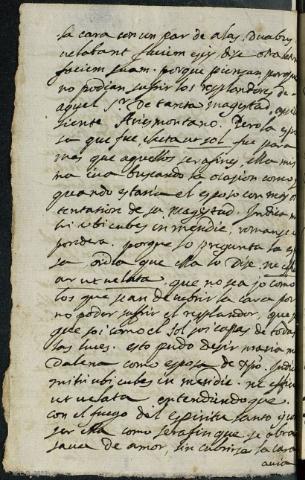 la cara con un par de alas. Duabus
velabant faciem eius dize otra letra
faciem suam. porque piensan porque
no podian sufrir los resplandores de
aquel Sr. De tanta magestad,
siente Ariasmontano. Pero la espo
sa que fue electa ut sol fue para
mas que aquellos serafines, ella mis
ma iva buscando la ocasion como
quando estaria el esposo con mas os
tentacion de su magestad. Indica mi
hi ubi cubes in meridie,
pondera, porque lo pregunta la espo
sa ella lo dize, ne es
ar ut velata. que no sea io como
los que se an de cubrir la cara por
no poder sufrir el resplandor, que
que soi como el sol
las luces. esto pudo desir maria ma
dalena como esposa de Xpo. Indica
mihi ubi cubes in meridie. ne efficiar
ut velata, entendiendo que
con el fuego del espiritu santo que
ser ella como serafin que se abra
sava de amor, sin cubrirse la cara
avia